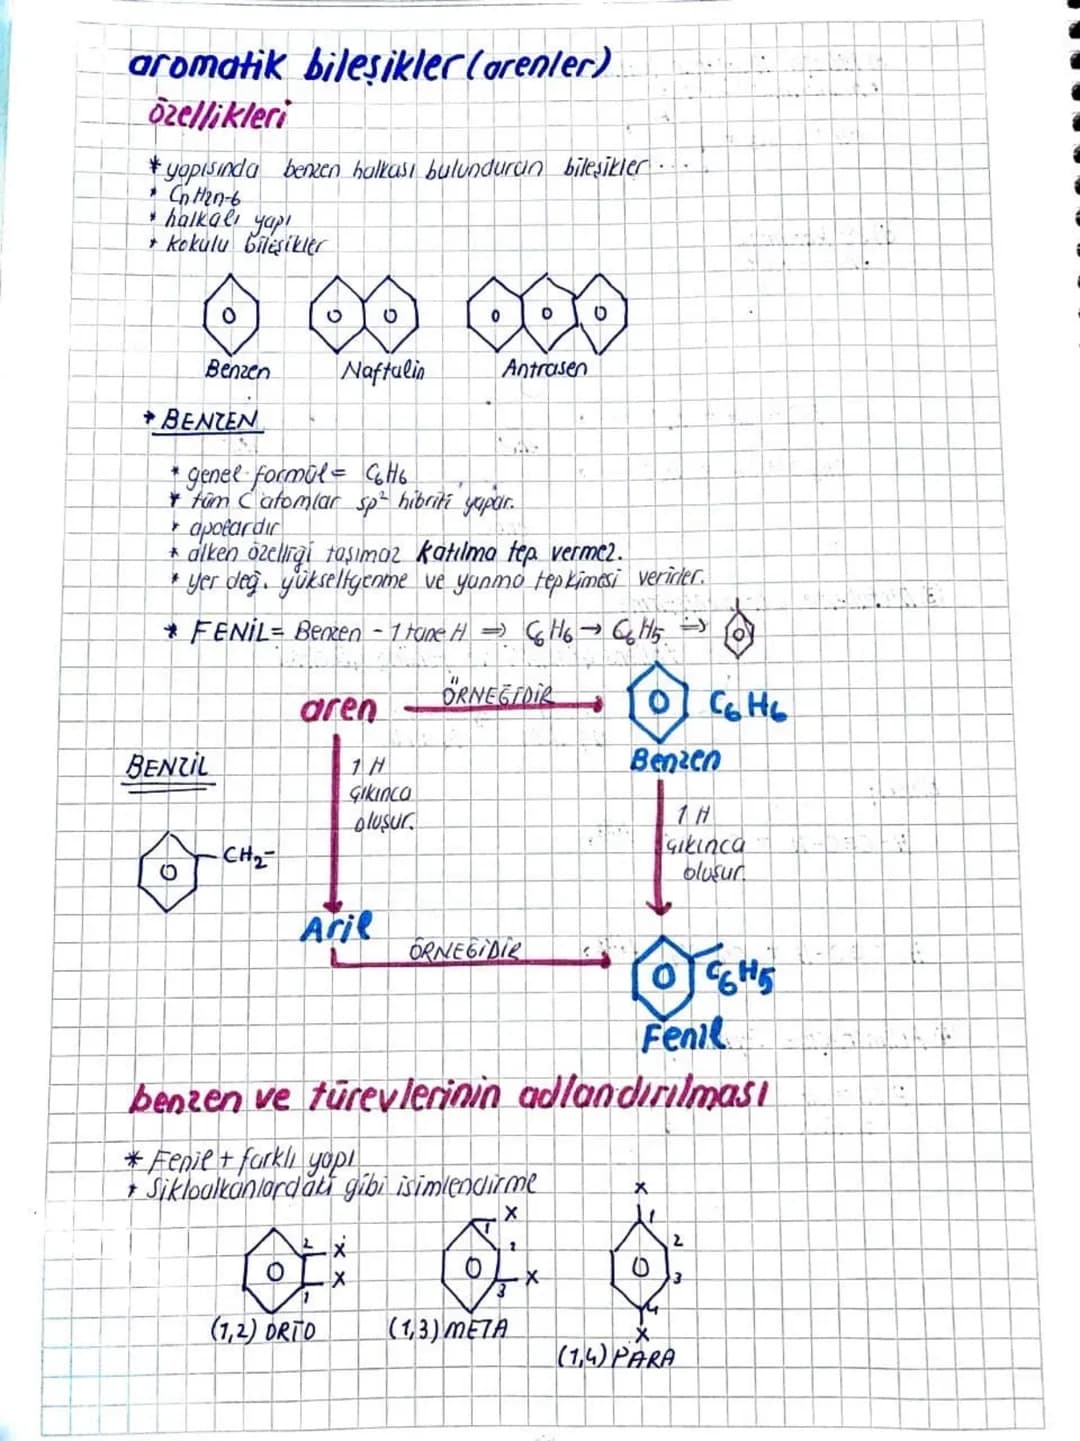 aromatik bileşikler (arenler)
özellikleri
* yapısında benzen halkası bulunduran bileşikler...
* CnH2n-6
* halkalı yapı
* kokulu bileşikler
Benzen Naftalin Antrasen
* BENZEN
* genel formül = C6H6
* tüm C atomlar sp² hibriti yapar.
* apolardır
* alken özelliği taşımaz katılma tep vermez.
* yer değ. yükseltgenme ve yanma tepkimesi verirler.
* FENİL = Benzen - 1 tane H ⇒ C6H6 → C6H5 ⇒
aren ÖRNEĞİDİR C6H6
Benzen
BENZİL
1 H
çıkınca
oluşur.
1 H
çıkınca
oluşur.
-CH2-
Aril
ÖRNEĞİDİR
C6H5
Fenil
benzen ve türevlerinin adlandırılması
* Fenil + farklı yapı
* Sikloalkanlardaki gibi isimlendirme
2 X
1 X
(1,2) ORTO
1 X
2
3 X
(1,3) META
X
1
2
3
4
X
(1,4) PARA